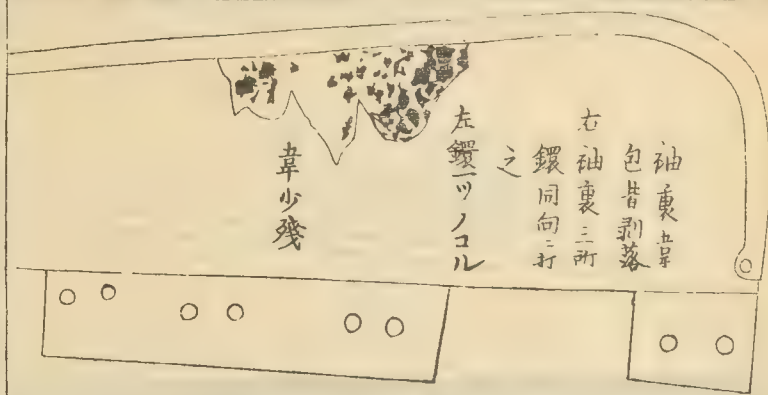 袖裏韋
包皆剥落
右袖裏三所
鐶同向ニ打
之
左鐶一ツノコル
韋少残